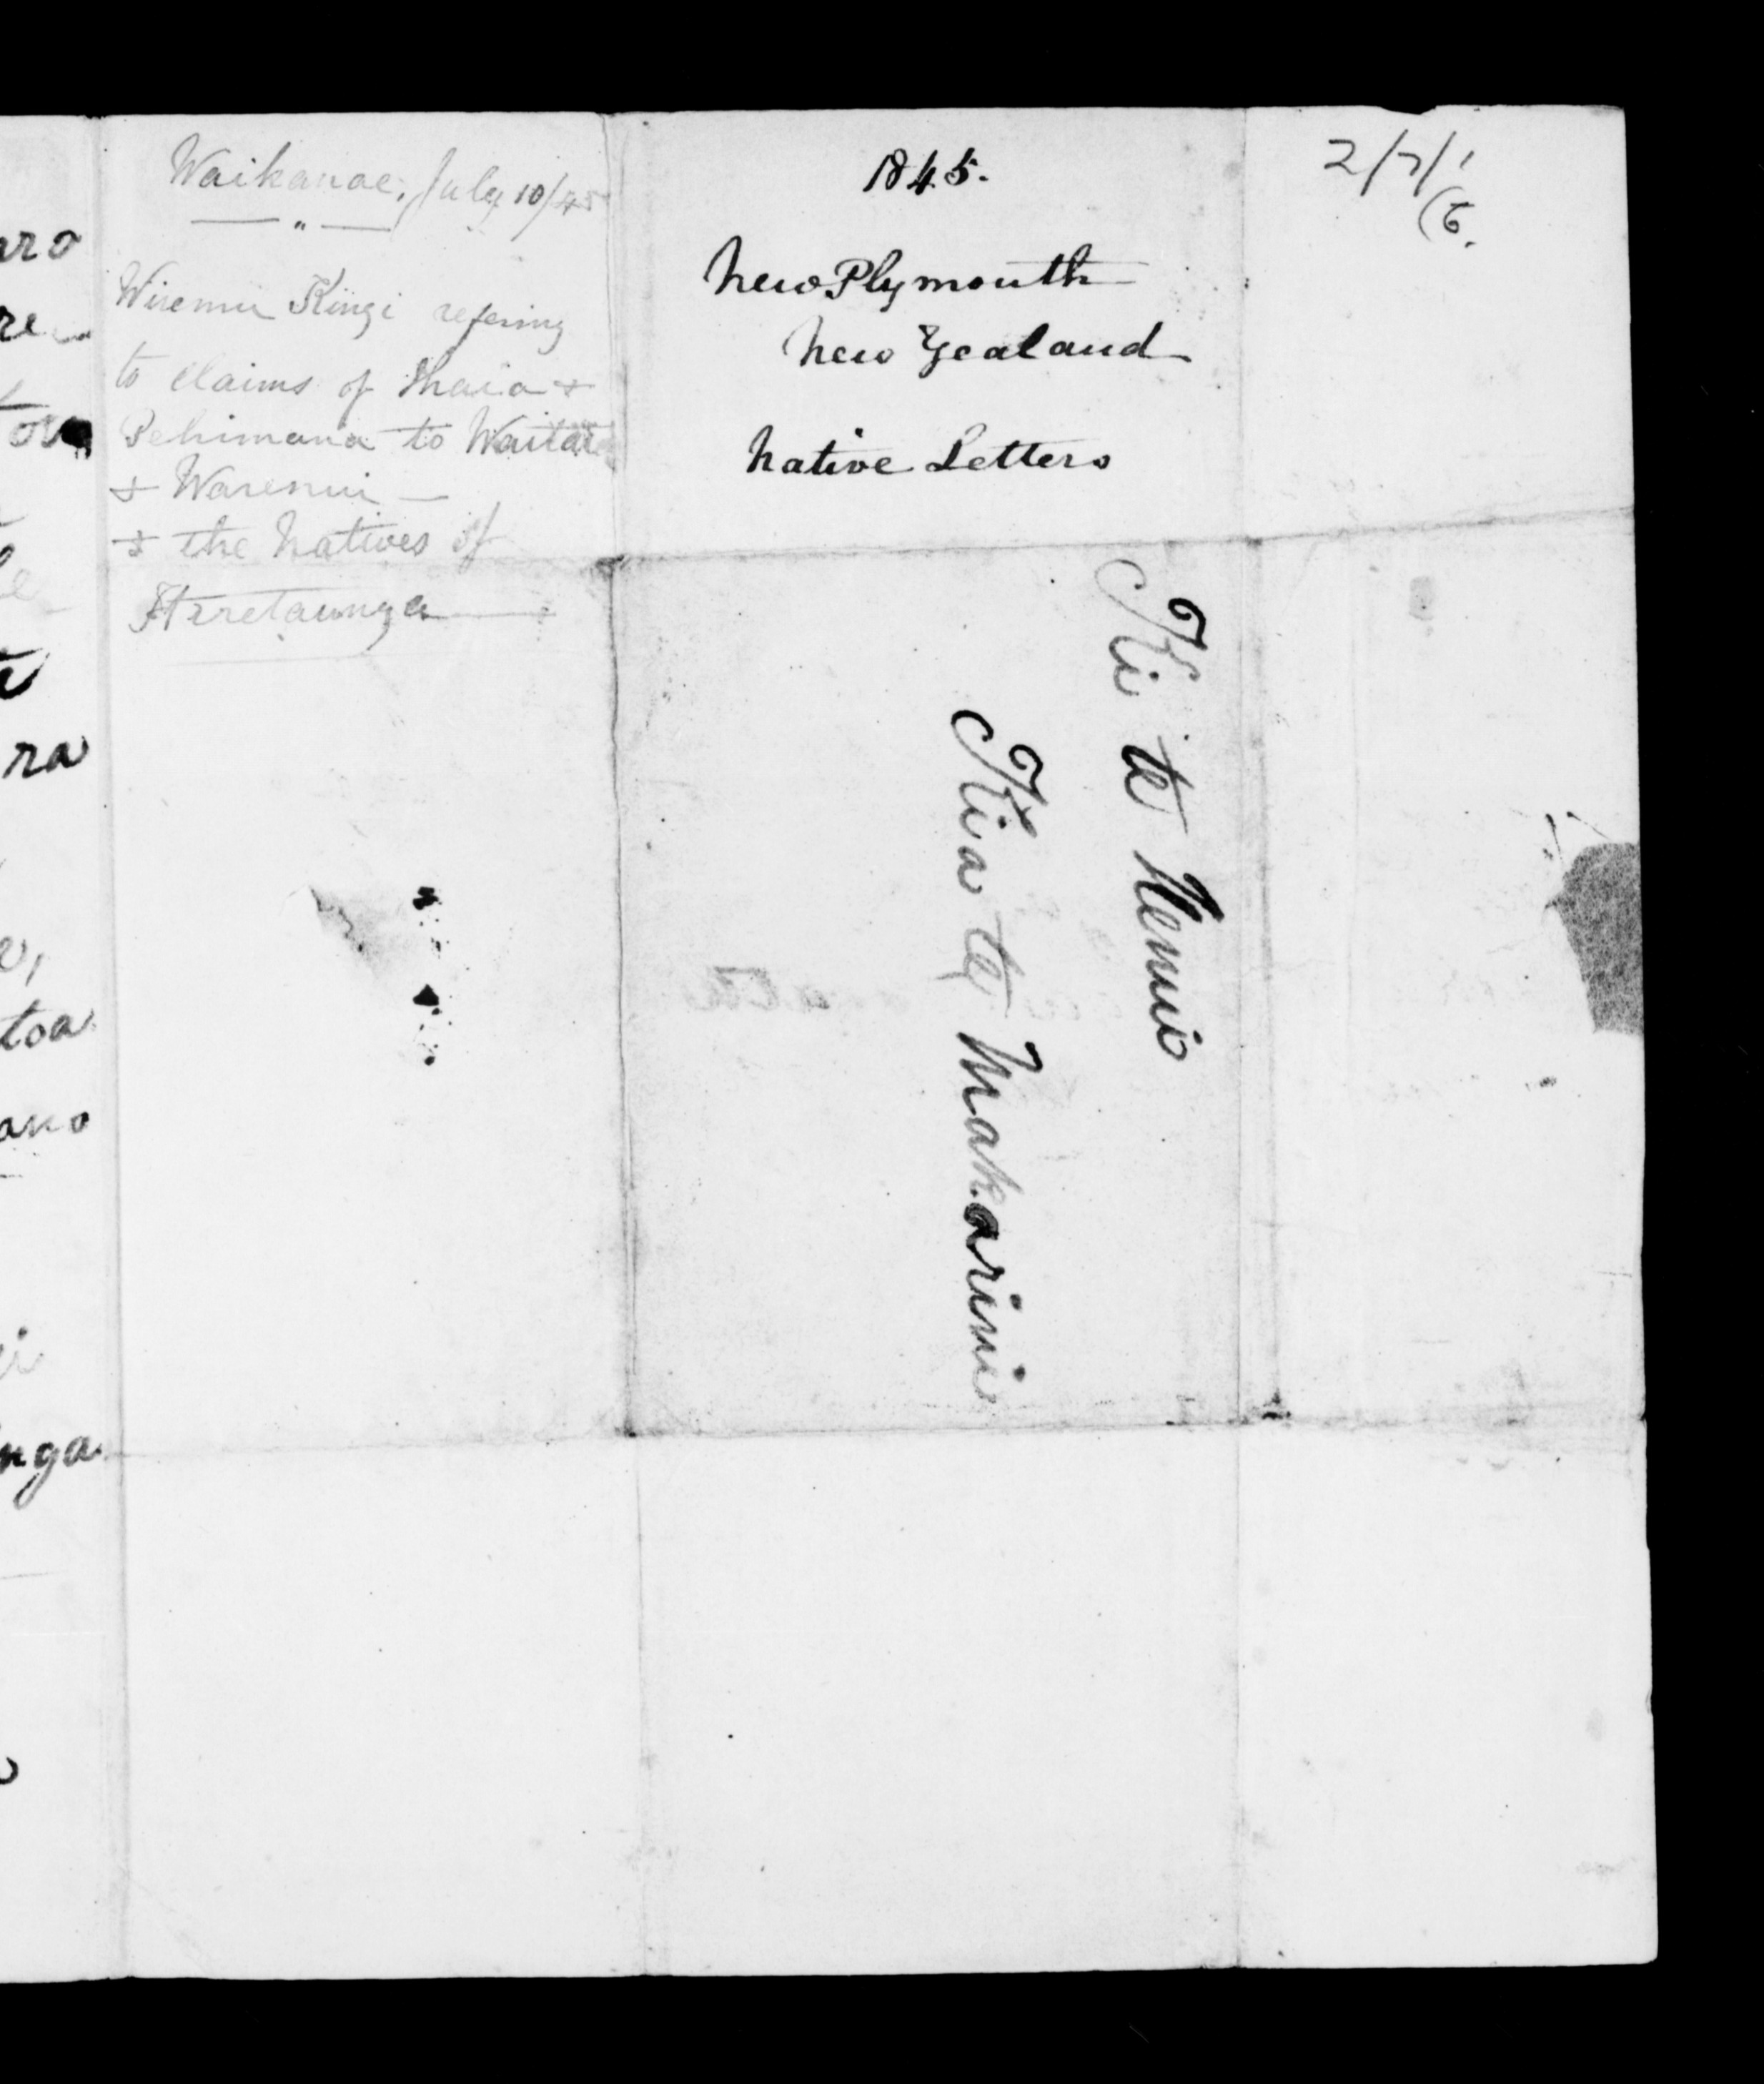 aro
re
ra
toa
nga
Waikanae, July 10/45
Wiremu Kingi refering
to Claims of Ihaia +
Pehimana to Waitara
+ Warenui —
+ the Natives of
Heretaunga
1845.
New Plymouth
New Zealand
Native Letters
Ki te Henui
Kia te Makarini
2/7/1
(6.